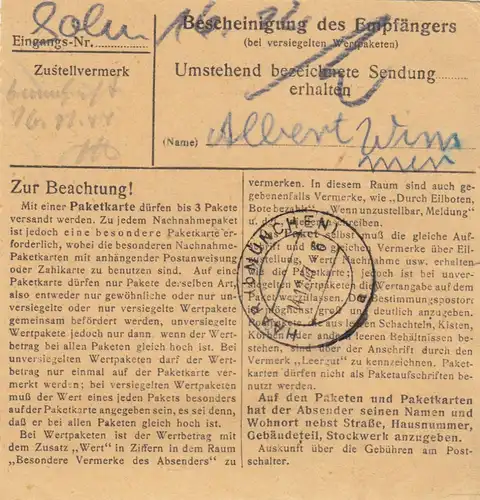 Sohn 16. 11.
Eingangs-Nr.
Bescheinigung des Empfängers
(bei versiegelten Wertpaketen)
Zustellvermerk
Umstehend bezeichnete Sendung
erhalten
16. 11. 44
(Name) Albert Wim
mer
Zur Beachtung!
Mit einer Paketkarte dürfen bis 3 Pakete
versandt werden. Zu jedem Nachnahmepaket
ist jedoch eine besondere Paketkarte er-
forderlich, wobei die besonderen Nachnahme-
Paketkarten mit anhängender Postanweisung
oder Zahlkarte zu benutzen sind. Auf eine
Paketkarte dürfen nur Pakete derselben Art,
also entweder nur gewöhnliche oder nur un-
versiegelte oder nur versiegelte Wertpakete
gemeinsam befördert werden, unversiegelte
Wertpakete jedoch nur dann wenn der Wert-
betrag bei allen Paketen gleich hoch ist. Bei
unversiegelten Wertpaketen darf der Wert-
betrag nur einmal auf der Paketkarte ver-
merkt werden; bei versiegelten Wertpaketen
muß der Wert eines jeden Pakets besonders
auf der Paketkarte angegeben sein, es sei denn,
daß er bei allen Paketen gleich hoch ist.
Bei Wertpaketen ist der Wertbetrag mit
dem Zusatz „Wert" in Ziffern in dem Raum
"Besondere Vermerke des Absenders" zu
vermerken. In diesem Raum sind auch ge-
gebenenfalls Vermerke, wie „Durch Eilboten,
Bote bezahlt" „Wenn unzustellbar, Meldung"
niederzuschreiben.
Paket selbst muß die gleiche Auf-
schrift und die gleichen Vermerke über Eil-
zustellung, Wert Nachnahme usw. erhalten
wie die Paketkarte; jedoch ist bei unver-
siegelten Wertpaketen die Wertangabe auf dem
Paket wegzulassen. Der Bestimmungspostort
möglichst groß und deutlich anzugeben.
Pakete, die aus leeren Schachteln, Kisten,
Körben oder andern leeren Behältnissen be-
stehen, sind über der Anschrift durch den
Vermerk „Leergut" zu kennzeichnen. Paket-
karten dürfen nicht als Paketaufschriften be-
nutzt werden.
Auf den Paketen und Paketkarten
hat der Absender seinen Namen und
Wohnort nebst Straße, Hausnummer,
Gebäudeteil, Stockwerk anzugeben.
Auskunft über die Gebühren am Post-
schalter.
HAAR (MÜNCHEN)
a